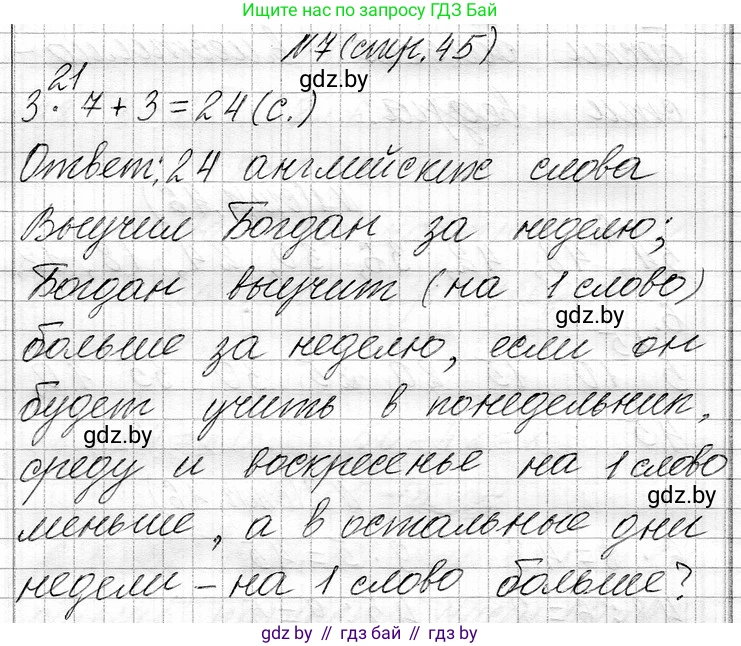 Ищите нас по запросу ГДЗ Бай
№7 (стр. 45)
gdz.by
21
3 · 7 + 3 = 24 (с.)
Ответ: 24 английских слова
Выучил Богдан за неделю;
Богдан выучит (на 1 слово)
gdz.by
больше за неделю, если он
будет учить в понедельник,
gdz.by
среду и воскресенье на 1 слово
gdz.by
меньше, а в остальные дни
недели – на 1 слово больше?
gdz.by // гдз бай // gdz by